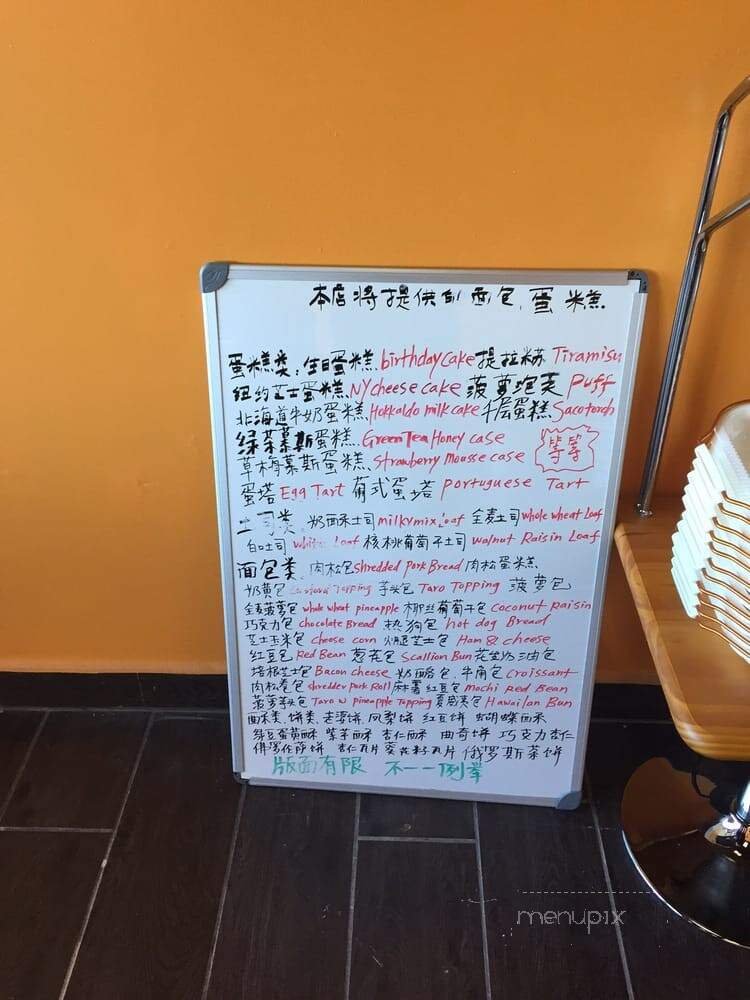 本店将提供的面包、蛋糕
蛋糕类:生日蛋糕 birthday cake 提拉米苏 Tiramisu
纽约芝士蛋糕 NY cheese cake 菠萝泡芙 Puff
北海道牛奶蛋糕 Hokkaldo milk cake 千层蛋糕 Sacotorch
绿茶慕斯蛋糕 Green Tea Honey case
草梅慕斯蛋糕 Strawberry Mousse case 等等
蛋塔 Egg Tart 葡式蛋塔 Portuguese Tart
土司类、奶酥土司 milky mix Loaf 全麦土司 whole wheat Loaf
白土司 white Loaf 核桃葡萄干土司 walnut Raisin Loaf
面包类、肉松包 Shredded Pork Bread 肉松蛋糕
奶黄包 Topping 芋头包 Taro Topping 菠萝包
全麦菠萝包 whole wheat pineapple 椰丝葡萄干包 Coconut Raisin
巧克力包 chocolate Bread 热狗包 hot dog Bread
芝士玉米包 cheese corn 火腿芝士包 Ham & cheese
红豆包 Red Bean 葱花包 Scallion Bun 花生奶油包
培根芝士包 Bacon cheese 奶酪包、牛角包 Croissant
肉松卷包 shredder pork Roll 麻薯红豆包 Mochi Red Bean
菠萝芋头包 Taro w pineapple Topping 夏威夷包 Hawaiian Bun
曲米类、饼类、老婆饼、凤梨饼 红豆饼 蝴蝶酥
绿豆蛋黄酥 紫芋酥 杏仁酥 曲奇饼 巧克力杏仁
佛罗伦萨饼 杏仁瓦片 葵花籽瓦片 俄罗斯茶饼
版面有限 不一一例举
menupix